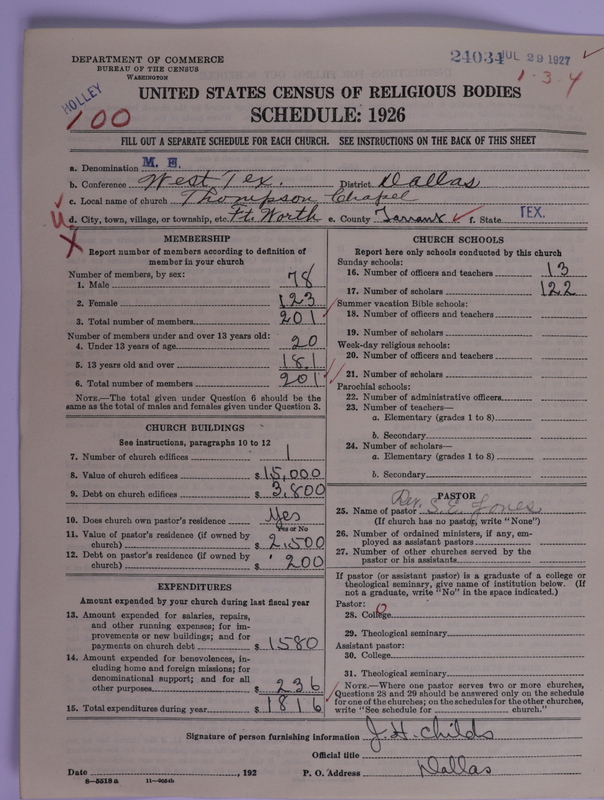 DEPARTMENT OF COMMERCE
BUREAU OF THE CENSUS
WASHINGTON
24034 JUL 29 1927
1-3-4
HOLLEY
100
UNITED STATES CENSUS OF RELIGIOUS BODIES
SCHEDULE: 1926
FILL OUT A SEPARATE SCHEDULE FOR EACH CHURCH. SEE INSTRUCTIONS ON THE BACK OF THIS SHEET
a. Denomination M. E.
b. Conference West Tex. District Dallas
c. Local name of church Thompson Chapel
d. City, town, village, or township, etc. Ft. Worth e. County Tarrant f. State TEX.
MEMBERSHIP
Report number of members according to definition of
member in your church
Number of members, by sex:
1. Male 78
2. Female 123
3. Total number of members 201
Number of members under and over 13 years old:
4. Under 13 years of age 20
5. 13 years old and over 181
6. Total number of members 201
NOTE.—The total given under Question 6 should be the
same as the total of males and females given under Question 3.
CHURCH BUILDINGS
See instructions, paragraphs 10 to 12
7. Number of church edifices 1
8. Value of church edifices $15,000
9. Debt on church edifices $3,800
10. Does church own pastor's residence Yes
Yes or No
11. Value of pastor's residence (if owned by
church) $2,500
12. Debt on pastor's residence (if owned by
church) $200
EXPENDITURES
Amount expended by your church during last fiscal year
13. Amount expended for salaries, repairs,
and other running expenses; for im-
provements or new buildings; and for
payments on church debt $1580
14. Amount expended for benevolences, in-
cluding home and foreign missions; for
denominational support; and for all
other purposes $236
15. Total expenditures during year $1816
CHURCH SCHOOLS
Report here only schools conducted by this church
Sunday schools:
16. Number of officers and teachers 13
17. Number of scholars 122
Summer vacation Bible schools:
18. Number of officers and teachers
19. Number of scholars
Week-day religious schools:
20. Number of officers and teachers
21. Number of scholars
Parochial schools:
22. Number of administrative officers
23. Number of teachers—
a. Elementary (grades 1 to 8)
b. Secondary
24. Number of scholars—
a. Elementary (grades 1 to 8)
b. Secondary
PASTOR
25. Name of pastor Rev. S. E. Jones
(If church has no pastor, write "None")
26. Number of ordained ministers, if any, em-
ployed as assistant pastors
27. Number of other churches served by the
pastor or his assistants
If pastor (or assistant pastor) is a graduate of a college or
theological seminary, give name of institution below. (If
not a graduate, write "No" in the space indicated.)
Pastor:
28. College 0
29. Theological seminary
Assistant pastor:
30. College
31. Theological seminary
NOTE.—Where one pastor serves two or more churches,
Questions 28 and 29 should be answered only on the schedule
for one of the churches; on the schedules for the other churches,
write "See schedule for church."
Signature of person furnishing information J. H. Childs
Official title
Date , 192 P. O. Address Dallas
8—5518a 11—9654b